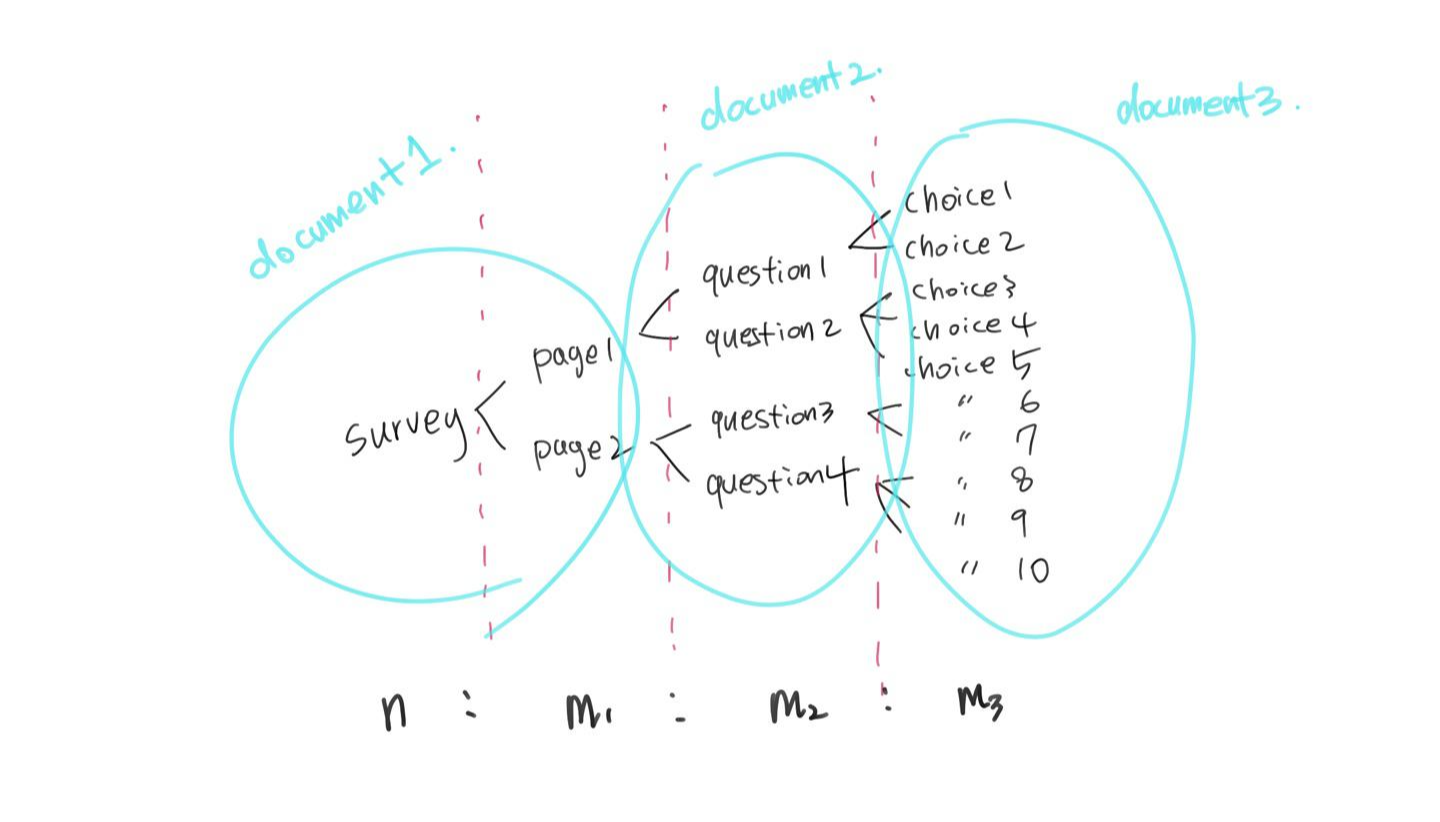 document1.
document2.
document3.
survey
page1
page2
question1
question2
question3
question4
choice1
choice2
choice3
choice4
choice 5
〃 6
〃 7
〃 8
〃 9
〃 10
n : m₁ : m₂ : m₃